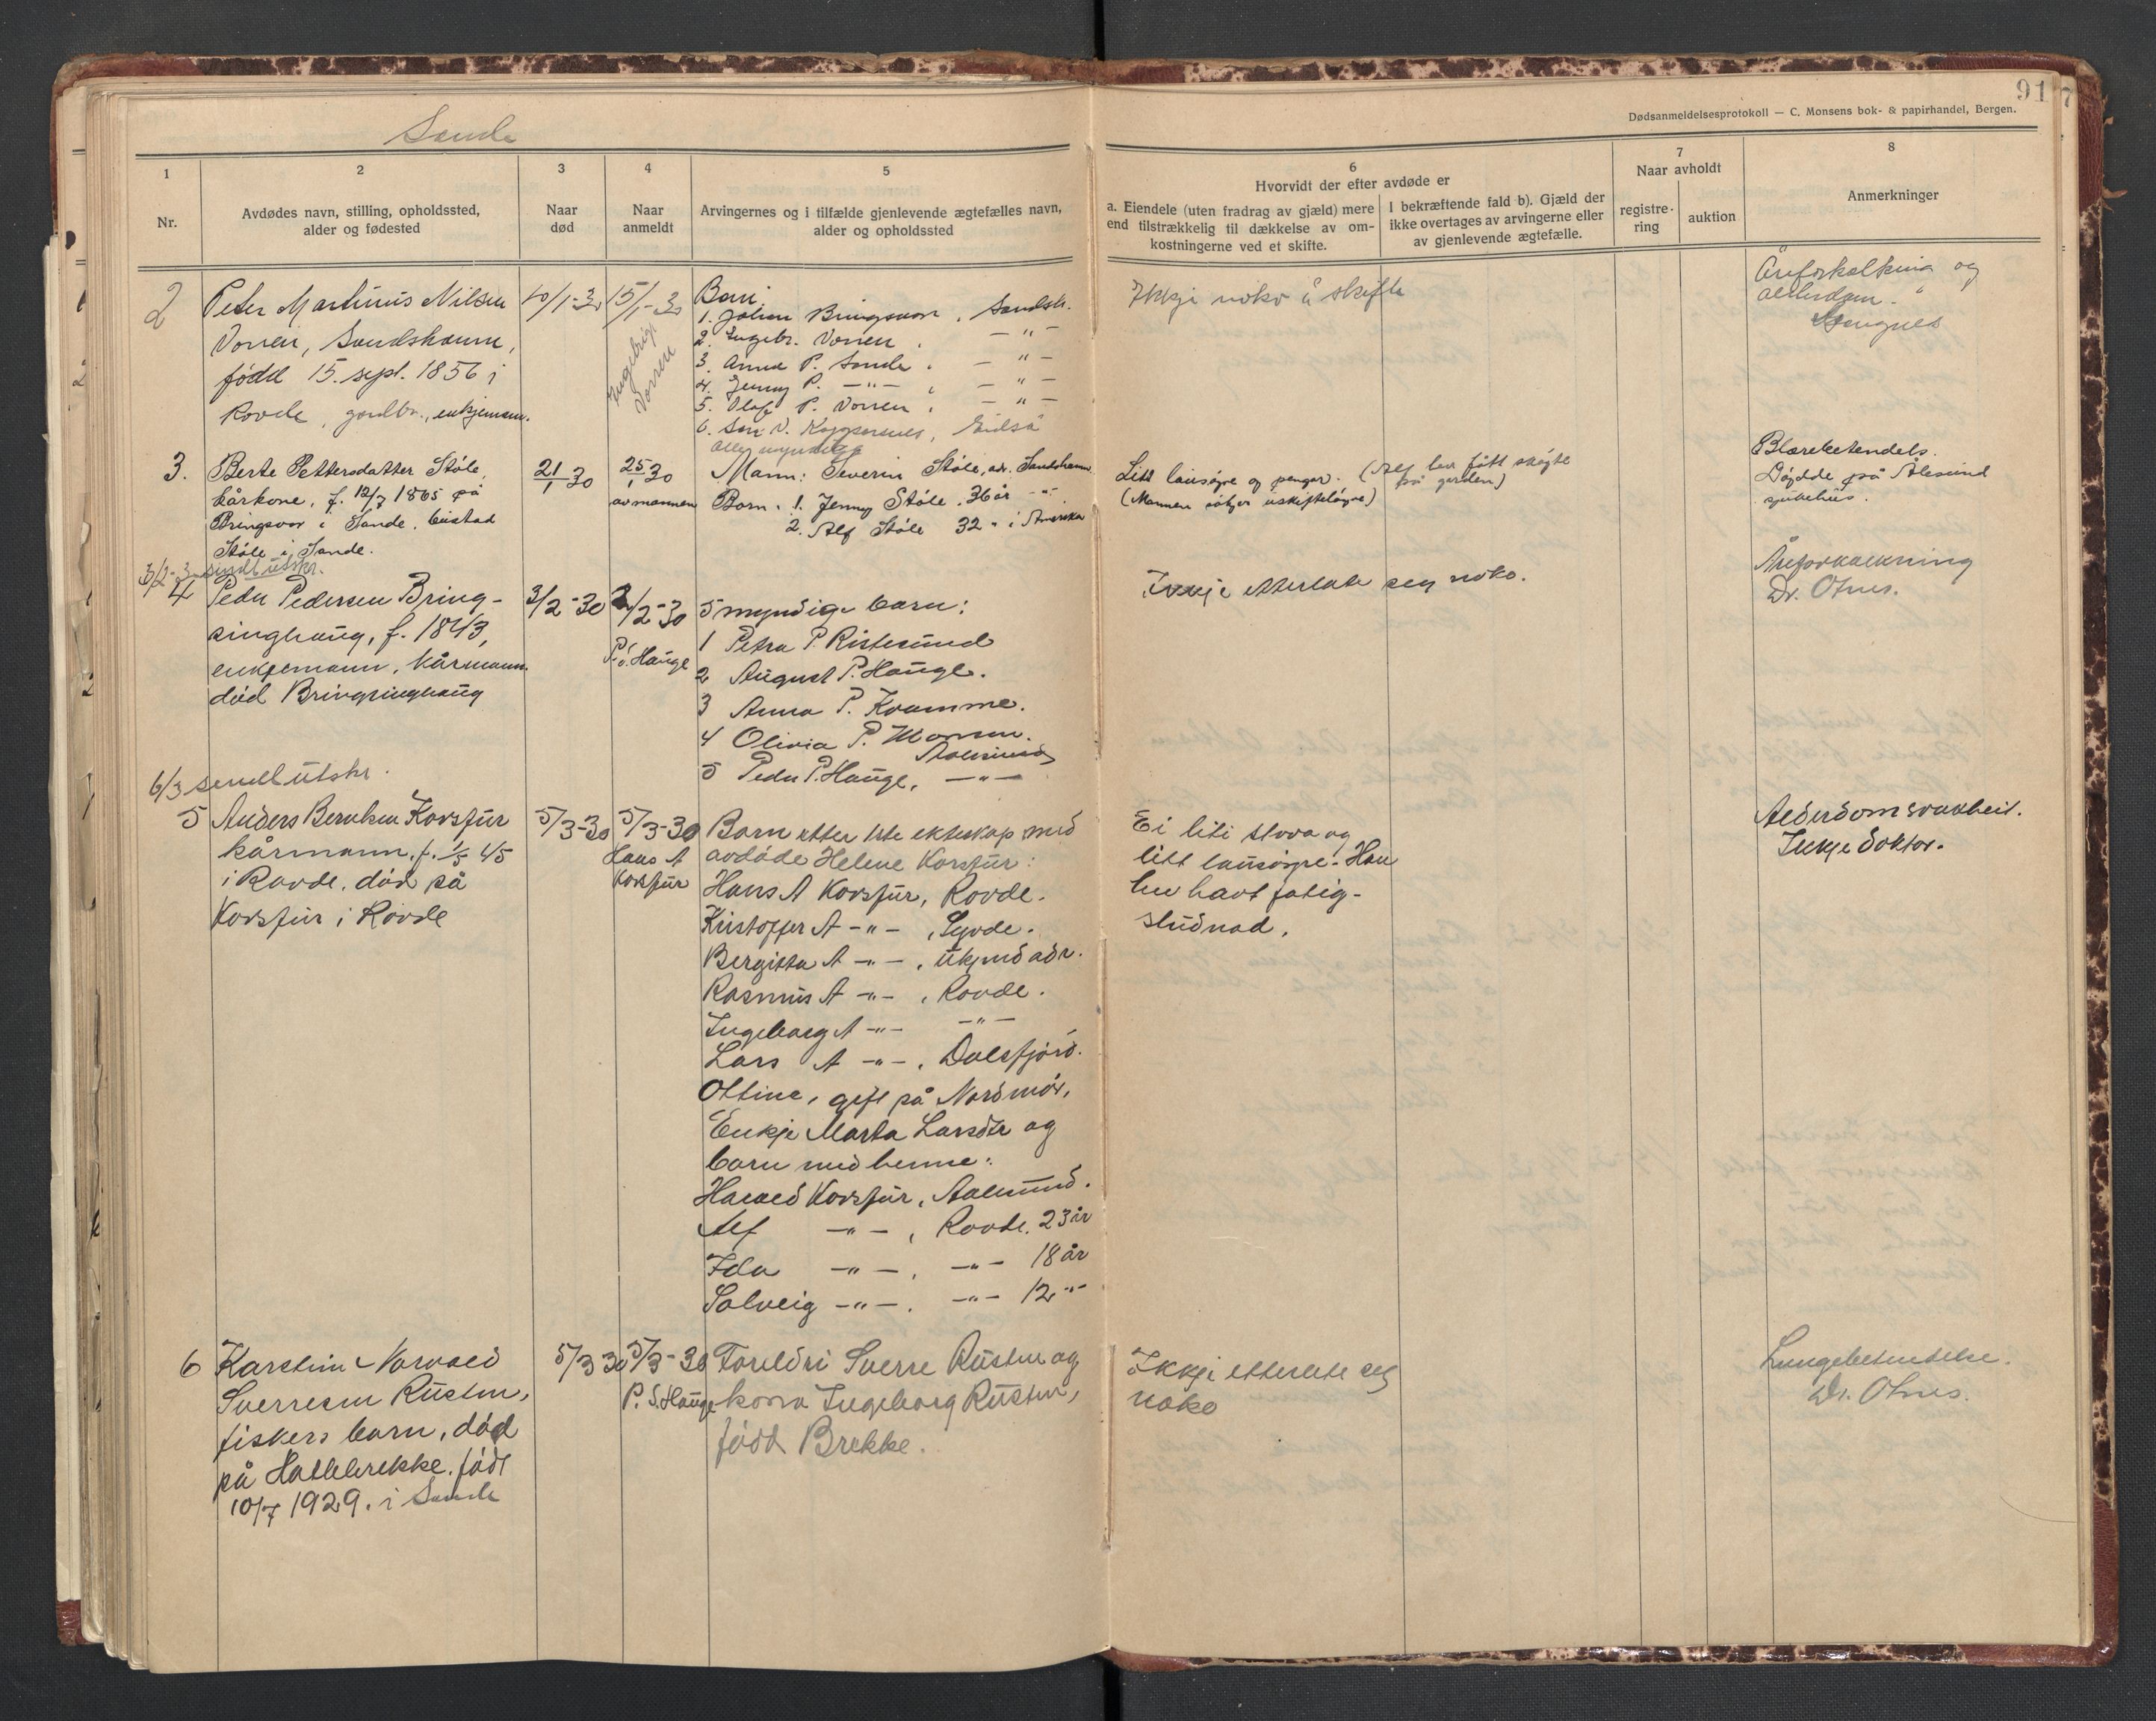 Sande
91
Dødsanmeldelsesprotokoll — C. Monsens bok- & papirhandel, Bergen.
1
Nr.
2
Avdødes navn, stilling, opholdssted,
alder og fødested
3
Naar
død
4
Naar
anmeldt
5
Arvingernes og i tilfælde gjenlevende ægtefælles navn,
alder og opholdssted
6
Hvorvidt der efter avdøde er
a. Eiendele (uten fradrag av gjæld) mere
end tilstrækkelig til dækkelse av om-
kostningerne ved et skifte.
I bekræftende fald b). Gjæld der
ikke overtages av arvingerne eller
av gjenlevende ægtefælle.
7
Naar avholdt
registre-
ring
auktion
8
Anmerkninger
2
Peter Martinus Nilsen
Vorren, Sandshamn,
fødd 15. sept. 1856 i
Rovde, gardbr., enkjemann.
10/1-30
15/1-30
Ingebrigt
Vorren
Born:
1. Johan Bringsvor, Sandsh.
2. Ingebr. Vorren, — " —
3. Anna P. Sande, — " —
4. Jenny P. — " — , — " —
5. Olaf P. Vorren, — " —
6. Eidså
alle myndige
Ikkje noko å skifte
Åreforkalkning og
alderdom.
3.
Berte Pettersdatter Støle,
kårkone, f. 12/7 1865 på
Bringsvor i Sande, bustad
Støle i Sande.
21/1 30
25/1 30
av mannen
Mann: Severin Støle, adr. Sandshamn
Born: 1. Jenny Støle, 36 år — " —
2. Alf Støle 32 " i Amerika
Litt lausøyre og pengar. (Alf har fått skøyte
på garden)
(Mannen søkjer uskifteløyve)
Blærebetendels.
Døydde på Ålesund
sjukehus.
3/2-30 sendt utskr.
4
Peder Pedersen Bring-
singhaug, f. 1843,
enkjemann, kårmann
død Bringsinghaug
3/2-30
2/2-30
P. S. Hauge
5 myndige barn:
1 Petra P. Ristesund
2 August P. Hauge.
3 Anna P. Kvamme.
4 Olivia P. Monsen.
Aalesund
5 Peder P. Hauge, — " —
Ikkje etterlate seg noko.
Åreforkalkning
Dr. Otnes.
6/3 sendt utskr.
5
Anders Berntsen Korsfur
kårmann, f. 1/5 45
i Rovde, død på
Korsfur i Rovde
5/3-30
5/3-30
Hans A
Korsfur
Barn etter 1ste ekteskap med
avdøde Helene Korsfur:
Hans A Korsfur, Rovde.
Kristoffer A — " — , Syvde.
Bergitta A — " — , ukjend adr.
Rasmus A — " — , Rovde.
Ingeborg A — " — — " —
Lars A — " — , Dalsfjord.
Ottine, gift på Nordmør,
Enkje Marta Larsdtr og
barn med henne:
Harald Korsfur, Aalesund.
Alf — " — , Rovde, 23 år
Ida — " — , — " — 18 år
Solveig — " — , — " — 12 — " —
Ei liti stova og
litt lausøyre. Han
hev havt fatig-
studnad.
Alderdomsvakheit.
Ikkje doktor.
6
Karstein Norvald
Sverresen Rusten,
fiskers barn, død
på Hallebrekke, født
10/7 1929. i Sande
5/3 30
5/3-30
P. S. Hauge
Foreldri Sverre Rusten og
kona Ingeborg Rusten,
født Brekke.
Ikkje etterlate seg
noko
Lungebetendelse.
Dr. Otnes.